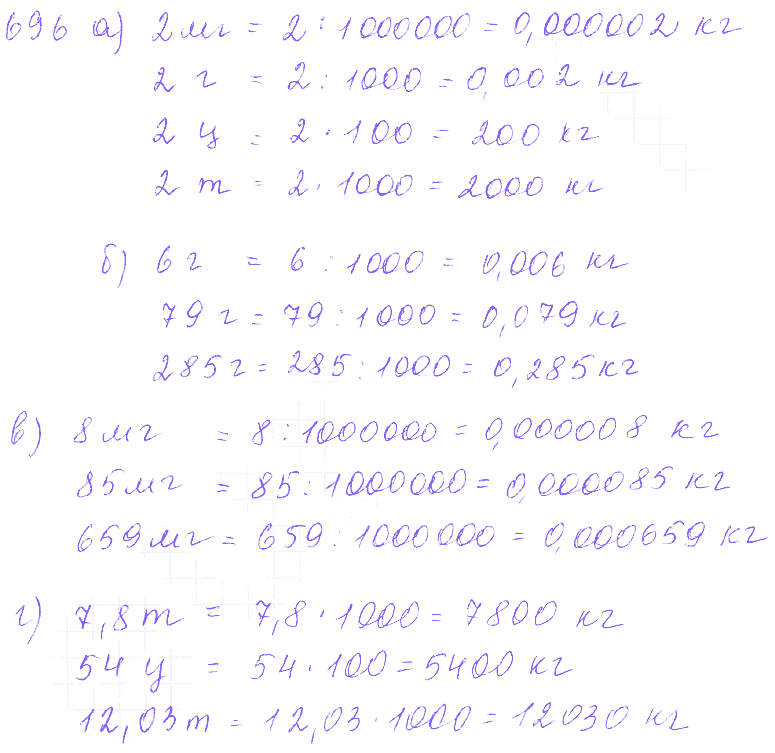 696 а) 2 мг = 2 : 1000000 = 0,000002 кг
2 г = 2 : 1000 = 0,002 кг
2 ц = 2 · 100 = 200 кг
2 т = 2 · 1000 = 2000 кг
б) 6 г = 6 : 1000 = 0,006 кг
79 г = 79 : 1000 = 0,079 кг
285 г = 285 : 1000 = 0,285 кг
в) 8 мг = 8 : 1000000 = 0,000008 кг
85 мг = 85 : 1000000 = 0,000085 кг
659 мг = 659 : 1000000 = 0,000659 кг
г) 7,8 т = 7,8 · 1000 = 7800 кг
54 ц = 54 · 100 = 5400 кг
12,03 т = 12,03 · 1000 = 12030 кг